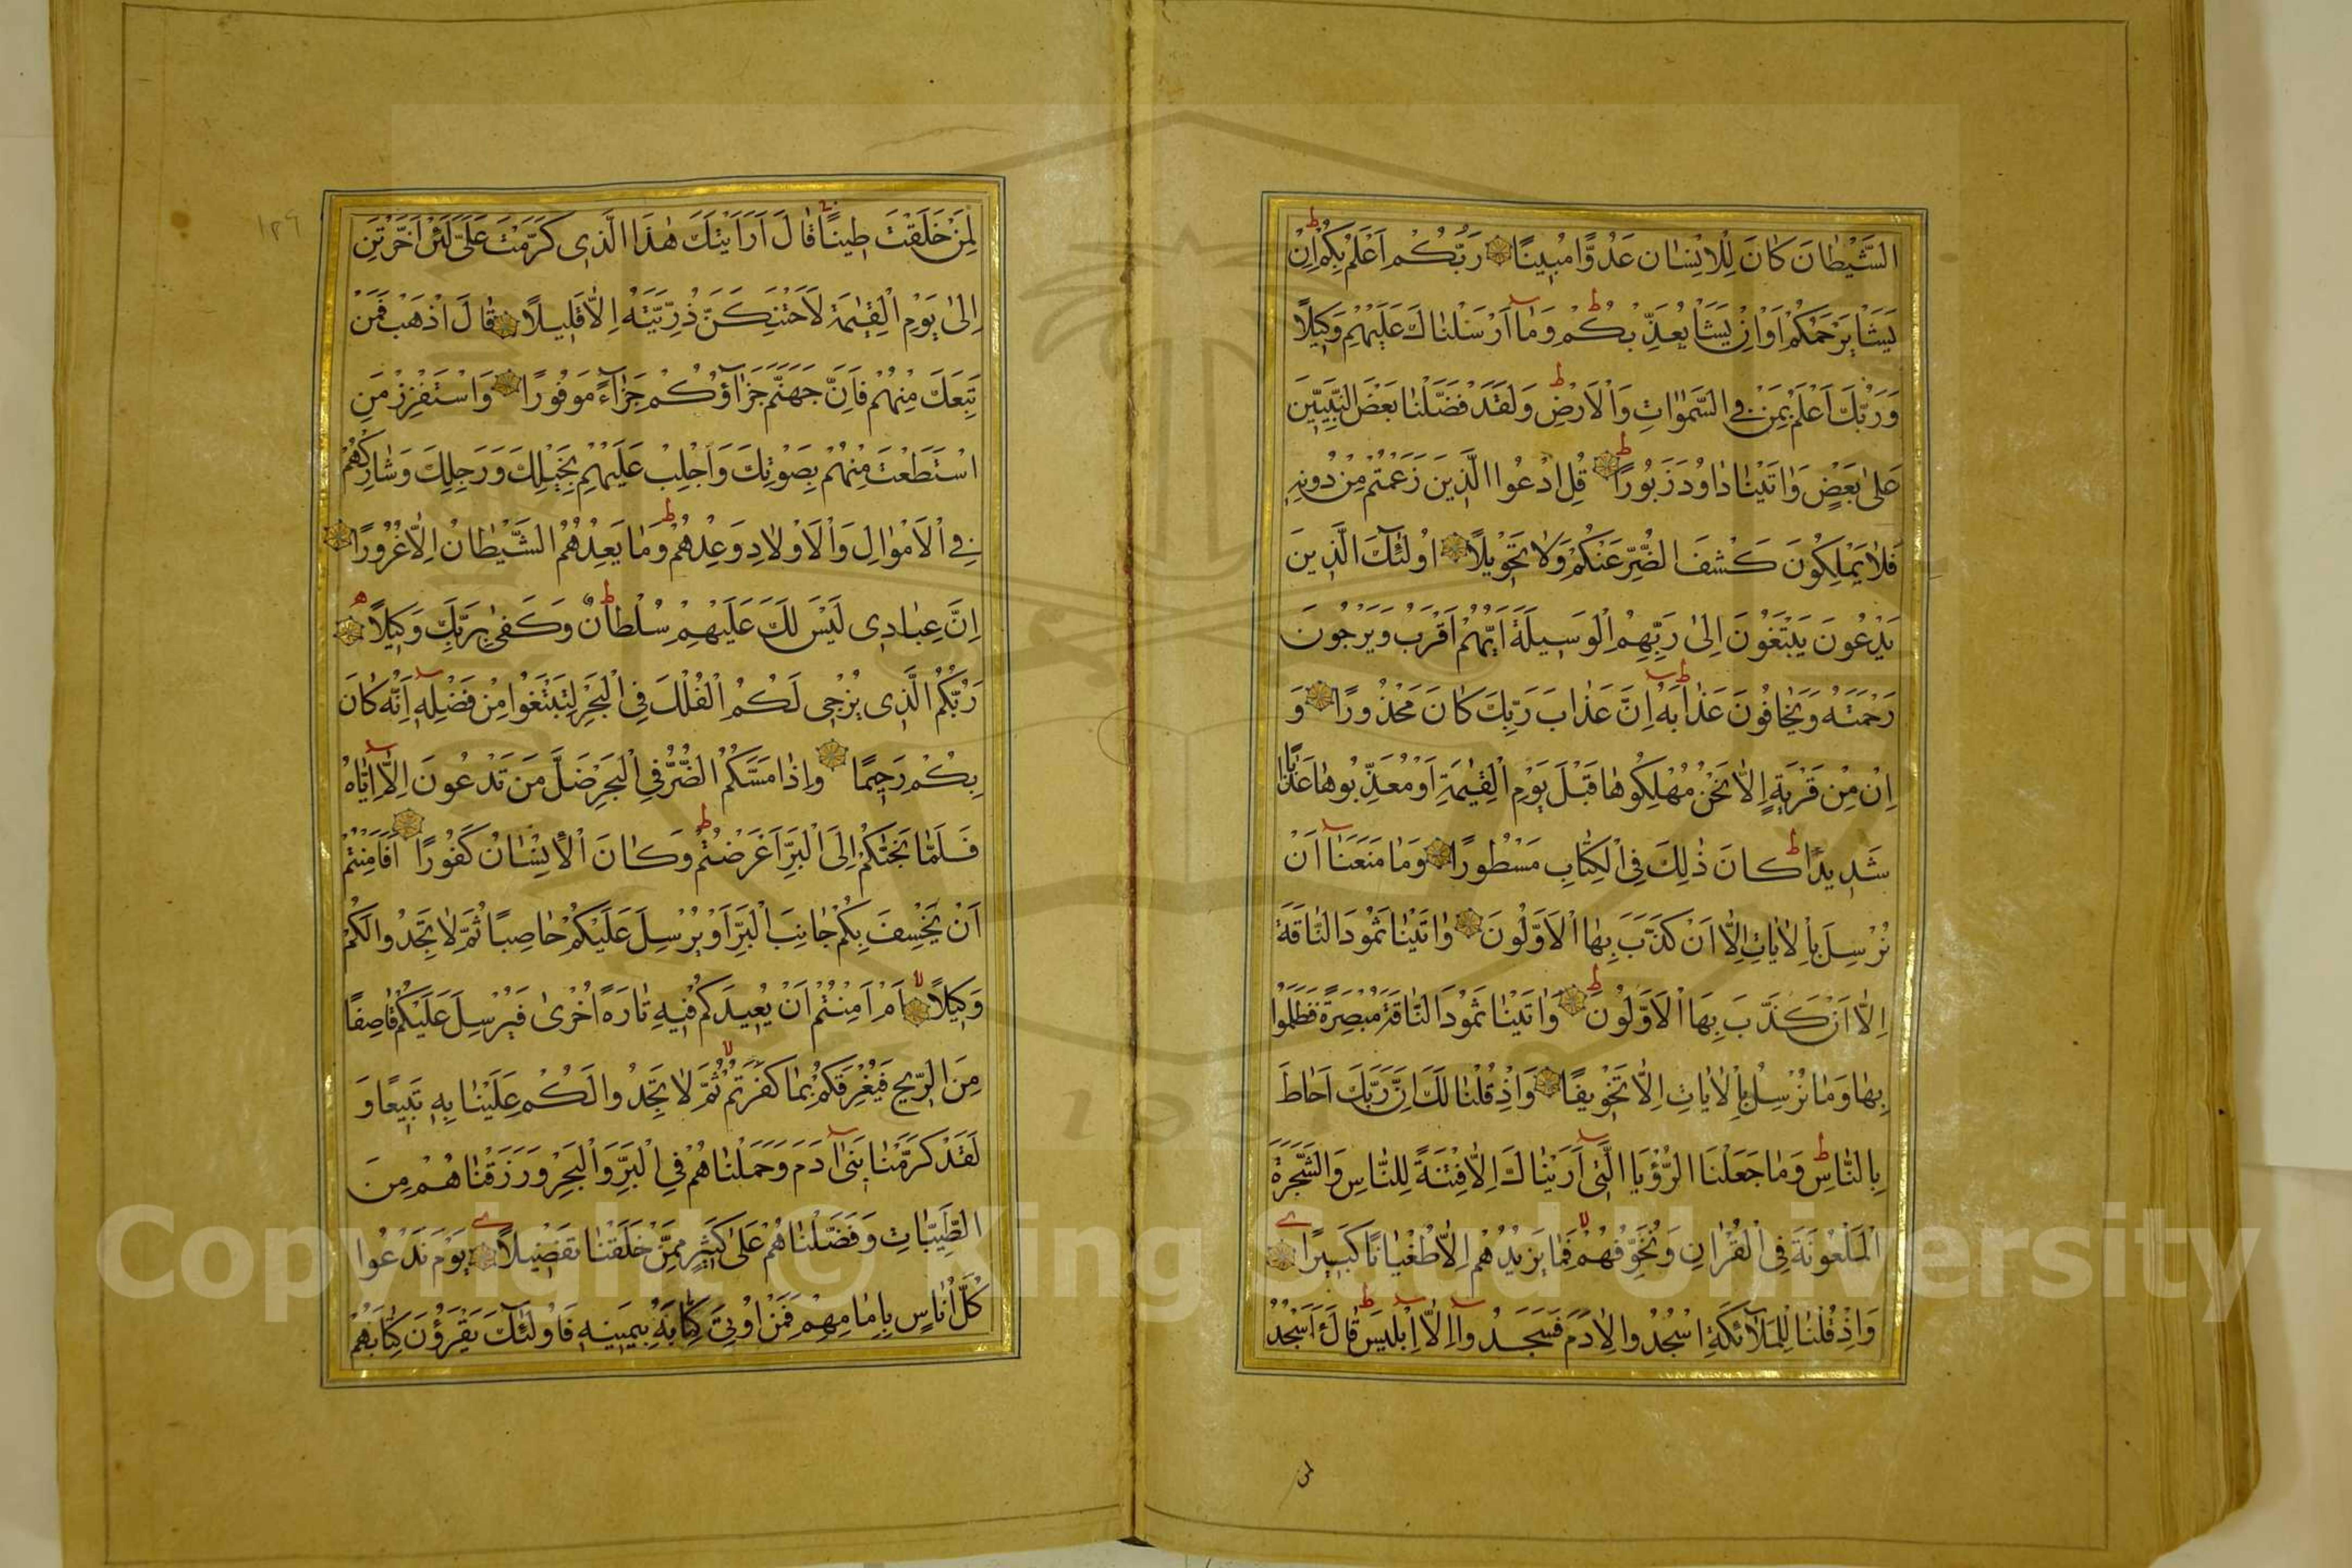 الشَّيْطَانَ كَانَ لِلْاِنْسَانِ عَدُوًّا مُبِينًا رَبُّكُمْ اَعْلَمُ بِكُمْ اِنْ
يَشَأْ يَرْحَمْكُمْ اَوْ اِنْ يَشَأْ يُعَذِّبْكُمْ وَمَا اَرْسَلْنَاكَ عَلَيْهِمْ وَكِيلًا
وَرَبُّكَ اَعْلَمُ بِمَنْ فِي السَّمٰوَاتِ وَالْاَرْضِ وَلَقَدْ فَضَّلْنَا بَعْضَ النَّبِيِّينَ
عَلَى بَعْضٍ وَاٰتَيْنَا دَاوُدَ زَبُورًا قُلِ ادْعُوا الَّذِينَ زَعَمْتُمْ مِنْ دُونِهِ
فَلَا يَمْلِكُونَ كَشْفَ الضُّرِّ عَنْكُمْ وَلَا تَحْوِيلًا اُولٰئِكَ الَّذِينَ
يَدْعُونَ يَبْتَغُونَ اِلٰى رَبِّهِمُ الْوَسِيلَةَ اَيُّهُمْ اَقْرَبُ وَيَرْجُونَ
رَحْمَتَهُ وَيَخَافُونَ عَذَابَهُ اِنَّ عَذَابَ رَبِّكَ كَانَ مَحْذُورًا وَ
اِنْ مِنْ قَرْيَةٍ اِلَّا نَحْنُ مُهْلِكُوهَا قَبْلَ يَوْمِ الْقِيٰمَةِ اَوْ مُعَذِّبُوهَا عَذَابًا
شَدِيدًا كَانَ ذٰلِكَ فِي الْكِتَابِ مَسْطُورًا وَمَا مَنَعَنَا اَنْ
نُرْسِلَ بِالْاٰيَاتِ اِلَّا اَنْ كَذَّبَ بِهَا الْاَوَّلُونَ وَاٰتَيْنَا ثَمُودَ النَّاقَةَ
اِلَّا اَنْ كَذَّبَ بِهَا الْاَوَّلُونَ وَاٰتَيْنَا ثَمُودَ النَّاقَةَ مُبْصِرَةً فَظَلَمُوا
بِهَا وَمَا نُرْسِلُ بِالْاٰيَاتِ اِلَّا تَخْوِيفًا وَاِذْ قُلْنَا لَكَ اِنَّ رَبَّكَ اَحَاطَ
بِالنَّاسِ وَمَا جَعَلْنَا الرُّؤْيَا الَّتِي اَرَيْنَاكَ اِلَّا فِتْنَةً لِلنَّاسِ وَالشَّجَرَةَ
الْمَلْعُونَةَ فِي الْقُرْاٰنِ وَنُخَوِّفُهُمْ فَمَا يَزِيدُهُمْ اِلَّا طُغْيَانًا كَبِيرًا
وَاِذْ قُلْنَا لِلْمَلٰٓئِكَةِ اسْجُدُوا لِاٰدَمَ فَسَجَدُوا اِلَّا اِبْلِيسَ قَالَ ءَاَسْجُدُ
لمن
١٢٦
لِمَنْ خَلَقْتَ طِينًا قَالَ اَرَاَيْتَكَ هٰذَا الَّذِي كَرَّمْتَ عَلَيَّ لَئِنْ اَخَّرْتَنِ
اِلٰى يَوْمِ الْقِيٰمَةِ لَاَحْتَنِكَنَّ ذُرِّيَّتَهُ اِلَّا قَلِيلًا قَالَ اذْهَبْ فَمَنْ
تَبِعَكَ مِنْهُمْ فَاِنَّ جَهَنَّمَ جَزَاؤُكُمْ جَزَاءً مَوْفُورًا وَاسْتَفْزِزْ مَنِ
اسْتَطَعْتَ مِنْهُمْ بِصَوْتِكَ وَاَجْلِبْ عَلَيْهِمْ بِخَيْلِكَ وَرَجِلِكَ وَشَارِكْهُمْ
فِي الْاَمْوَالِ وَالْاَوْلَادِ وَعِدْهُمْ وَمَا يَعِدُهُمُ الشَّيْطَانُ اِلَّا غُرُورًا
اِنَّ عِبَادِي لَيْسَ لَكَ عَلَيْهِمْ سُلْطَانٌ وَكَفٰى بِرَبِّكَ وَكِيلًا
رَبُّكُمُ الَّذِي يُزْجِي لَكُمُ الْفُلْكَ فِي الْبَحْرِ لِتَبْتَغُوا مِنْ فَضْلِهِ اِنَّهُ كَانَ
بِكُمْ رَحِيمًا وَاِذَا مَسَّكُمُ الضُّرُّ فِي الْبَحْرِ ضَلَّ مَنْ تَدْعُونَ اِلَّا اِيَّاهُ
فَلَمَّا نَجّٰكُمْ اِلَى الْبَرِّ اَعْرَضْتُمْ وَكَانَ الْاِنْسَانُ كَفُورًا اَفَاَمِنْتُمْ
اَنْ يَخْسِفَ بِكُمْ جَانِبَ الْبَرِّ اَوْ يُرْسِلَ عَلَيْكُمْ حَاصِبًا ثُمَّ لَا تَجِدُوا لَكُمْ
وَكِيلًا اَمْ اَمِنْتُمْ اَنْ يُعِيدَكُمْ فِيهِ تَارَةً اُخْرٰى فَيُرْسِلَ عَلَيْكُمْ قَاصِفًا
مِنَ الرِّيحِ فَيُغْرِقَكُمْ بِمَا كَفَرْتُمْ ثُمَّ لَا تَجِدُوا لَكُمْ عَلَيْنَا بِهِ تَبِيعًا وَ
لَقَدْ كَرَّمْنَا بَنِي اٰدَمَ وَحَمَلْنَاهُمْ فِي الْبَرِّ وَالْبَحْرِ وَرَزَقْنَاهُمْ مِنَ
الطَّيِّبَاتِ وَفَضَّلْنَاهُمْ عَلٰى كَثِيرٍ مِمَّنْ خَلَقْنَا تَفْضِيلًا يَوْمَ نَدْعُوا
كُلَّ اُنَاسٍ بِاِمَامِهِمْ فَمَنْ اُوتِيَ كِتَابَهُ بِيَمِينِهِ فَاُولٰئِكَ يَقْرَؤُنَ كِتَابَهُمْ
Copyright © King Saud University
1957